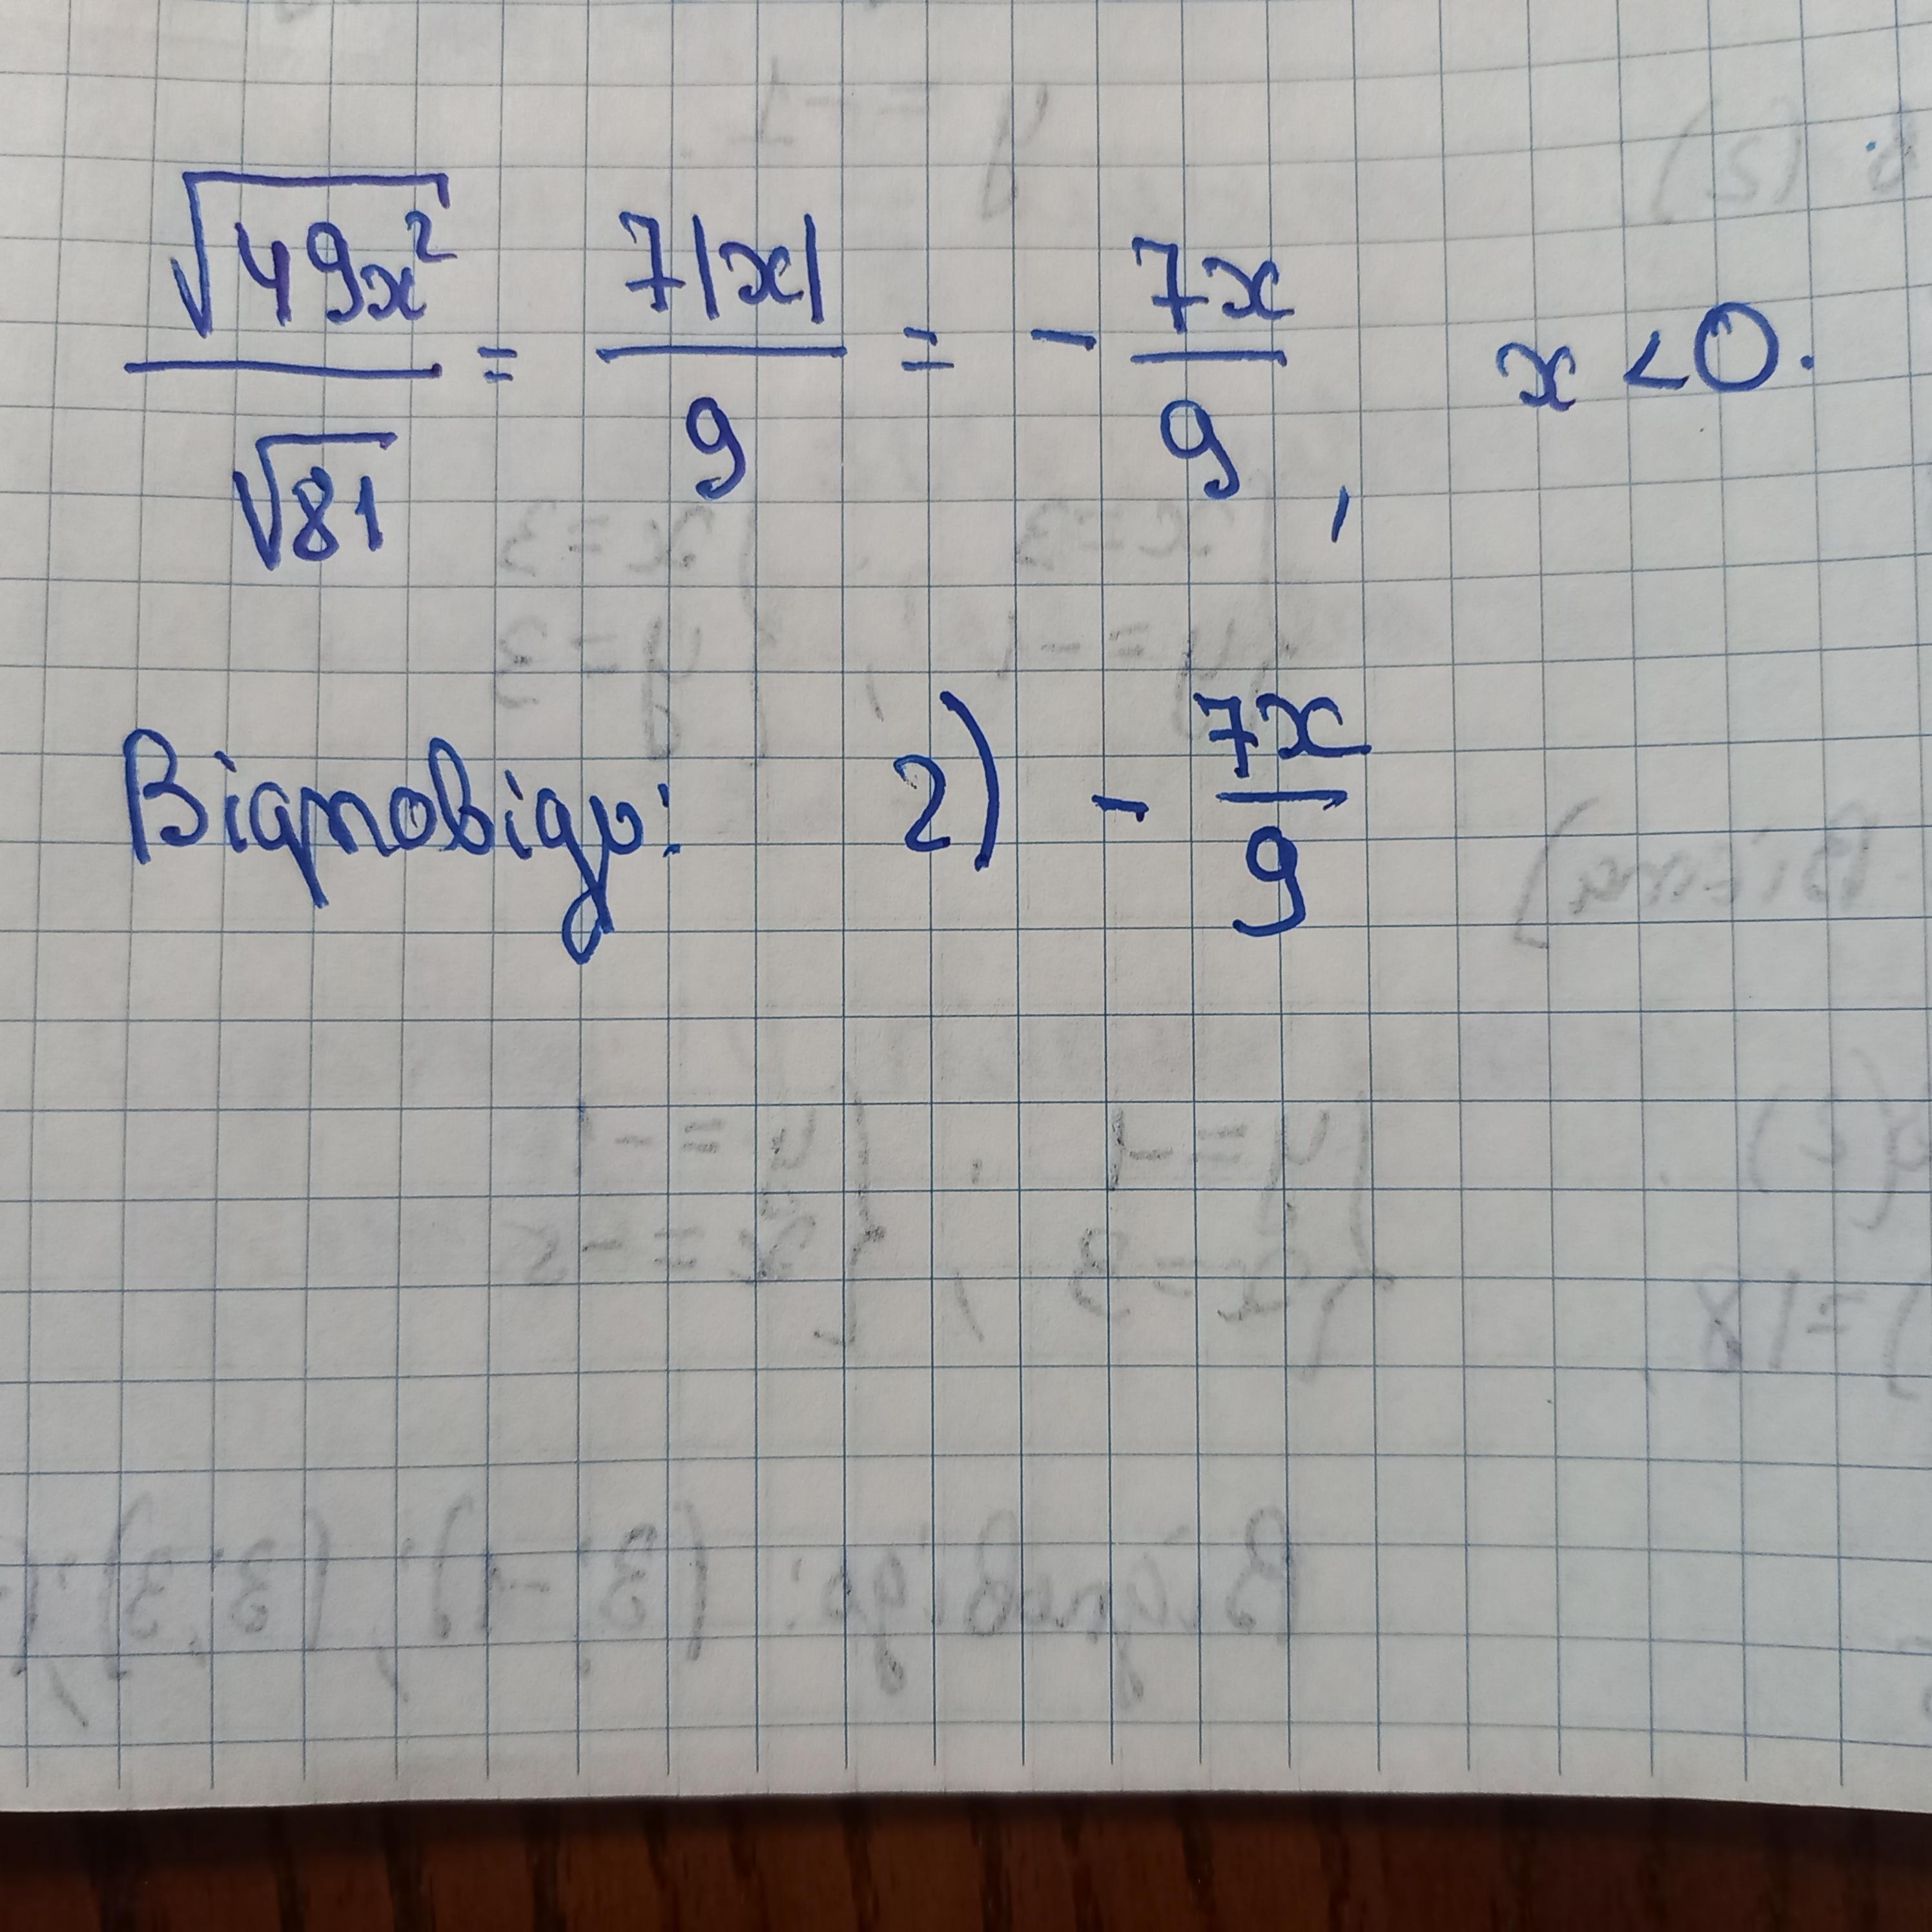 √49x² / √81 = 7|x| / 9 = - 7x / 9, x < 0.
Відповідь: 2) - 7x / 9